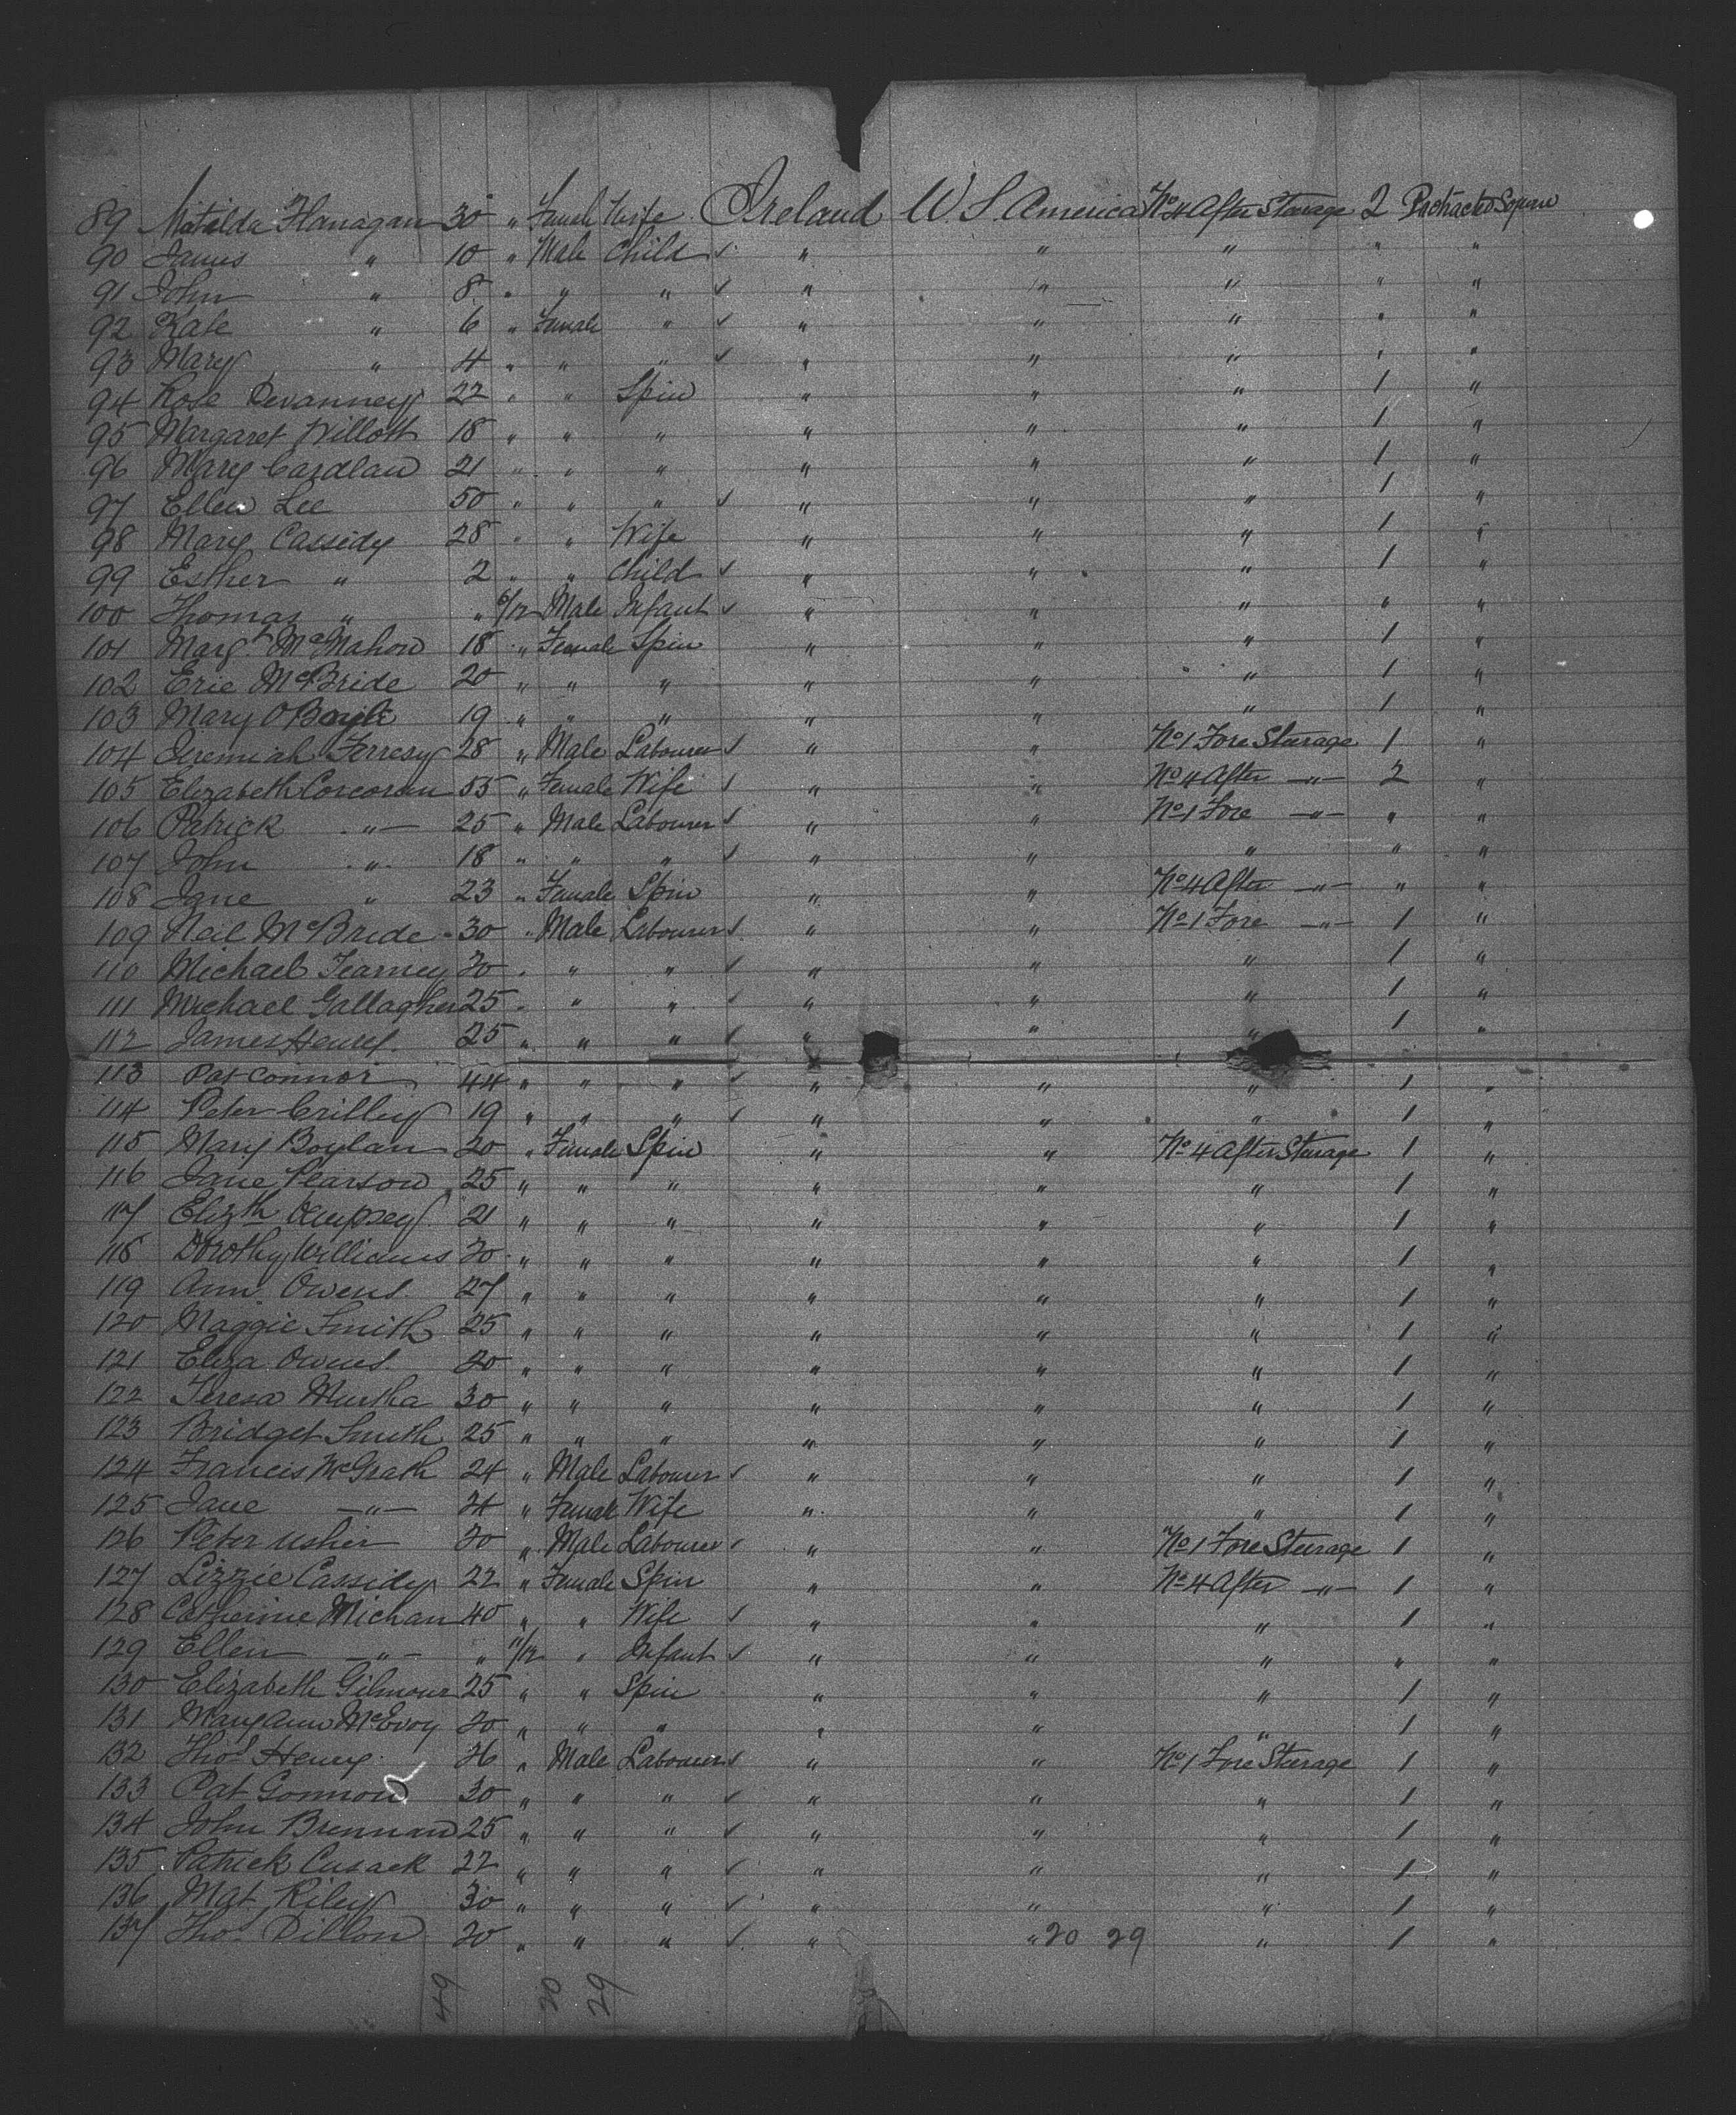 89 Matilda Flanagan 30 " Female Wife Ireland U S. America No 4 After Steerage 2 Protracted Sojourn
90 James " 10 " Male Child ✓ " " " " "
91 John " 8 " " " ✓ " " " " "
92 Kate " 6 " Female " ✓ " " " " "
93 Mary " 4 " " " ✓ " " " " "
94 Rose Devanney 22 " " Spin " " " 1 "
95 Margaret Willott 18 " " " " " " 1 "
96 Mary Cardlan 21 " " " " " " 1 "
97 Ellen Lee 50 " " " ✓ " " " 1 "
98 Mary Cassidy 28 " " Wife " " " 1 "
99 Esther " 2 " " Child ✓ " " " 1 "
100 Thomas " " 6/12 Male Infant ✓ " " " " "
101 Margt McMahon 18 " Female Spin " " " 1 "
102 Erie McBride 20 " " " " " " 1 "
103 Mary O'Boyle 19 " " " " " " 1 "
104 Jeremiah 28 " Male Labourer ✓ " " No 1 Fore Steerage 1 "
105 Elizabeth Corcoran 55 " Female Wife ✓ " " No 4 After —"— 2 "
106 Patrick —"— 25 " Male Labourer ✓ " " No 1 Fore —"— " "
107 John " 18 " " " ✓ " " " " "
108 Jane " 23 " Female Spin " " No 4 After —"— " "
109 Neil McBride 30 " Male Labourer ✓ " " No 1 Fore —"— 1 "
110 Michael Tearney 20 " " " ✓ " " " 1 "
111 Michael Gallagher 25 " " " ✓ " " " 1 "
112 James Henry 25 " " " ✓ " " " 1 "
113 Pat Connor 44 " " " ✓ " " " 1 "
114 Peter Crilley 19 " " " ✓ " " " 1 "
115 Mary Boylan 20 " Female Spin " " No 4 After Steerage 1 "
116 Jane Pearson 25 " " " " " " 1 "
117 Elizth Dempsey 21 " " " " " " 1 "
118 Dorothy Williams 20 " " " " " " 1 "
119 Ann Owens 27 " " " " " " 1 "
120 Maggie Smith 25 " " " " " " 1 "
121 Eliza Owens 20 " " " " " " 1 "
122 Teresa Murtha 30 " " " " " " 1 "
123 Bridget Smith 25 " " " " " " 1 "
124 Francis McGrath 24 " Male Labourer ✓ " " " 1 "
125 Jane —"— 24 " Female Wife " " " 1 "
126 Peter Usher 20 " Male Labourer ✓ " " No 1 Fore Steerage 1 "
127 Lizzie Cassidy 22 " Female Spin " " No 4 After —"— 1 "
128 Catherine Michan 40 " " Wife ✓ " " " 1 "
129 Ellen —"— " 11/12 " Infant ✓ " " " " "
130 Elizabeth Gilmour 25 " " Spin " " " 1 "
131 Mary Ann McEvoy 20 " " " " " " 1 "
132 Thos Henry 26 " Male Labourer ✓ " " No 1 Fore Steerage 1 "
133 Pat Gonnon 30 " " " ✓ " " " 1 "
134 John Brennan 25 " " " ✓ " " " 1 "
135 Patrick Cusack 22 " " " ✓ " " " 1 "
136 Mat Riley 30 " " " ✓ " " " 1 "
137 Thos Dillon 20 " " " ✓ " " 20 29 " 1 "
49 20 29